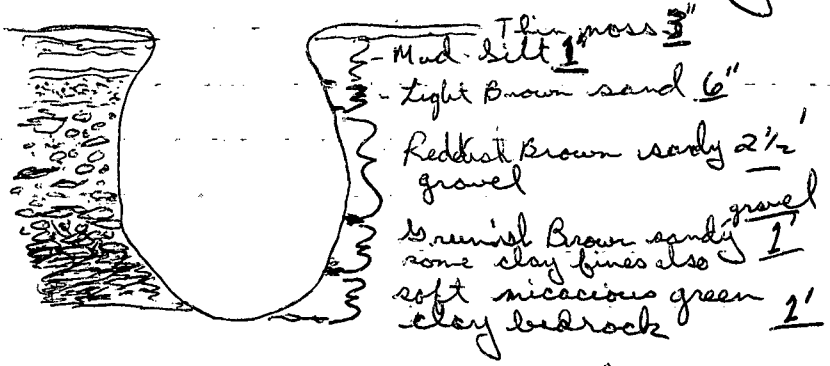 Thin moss 3"
Mud-Silt 1"
Light Brown sand 6"
Reddist Brown sandy 2½'
gravel
Grunish Brown sandy gravel 1'
some clay fines also
soft micacious green
clay bedrock 1'